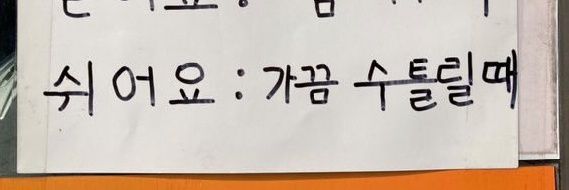 쉬어요 : 가끔 수틀릴때